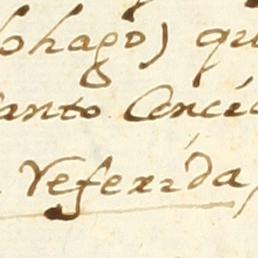 lohago) qu
anto Concéd
Referida,